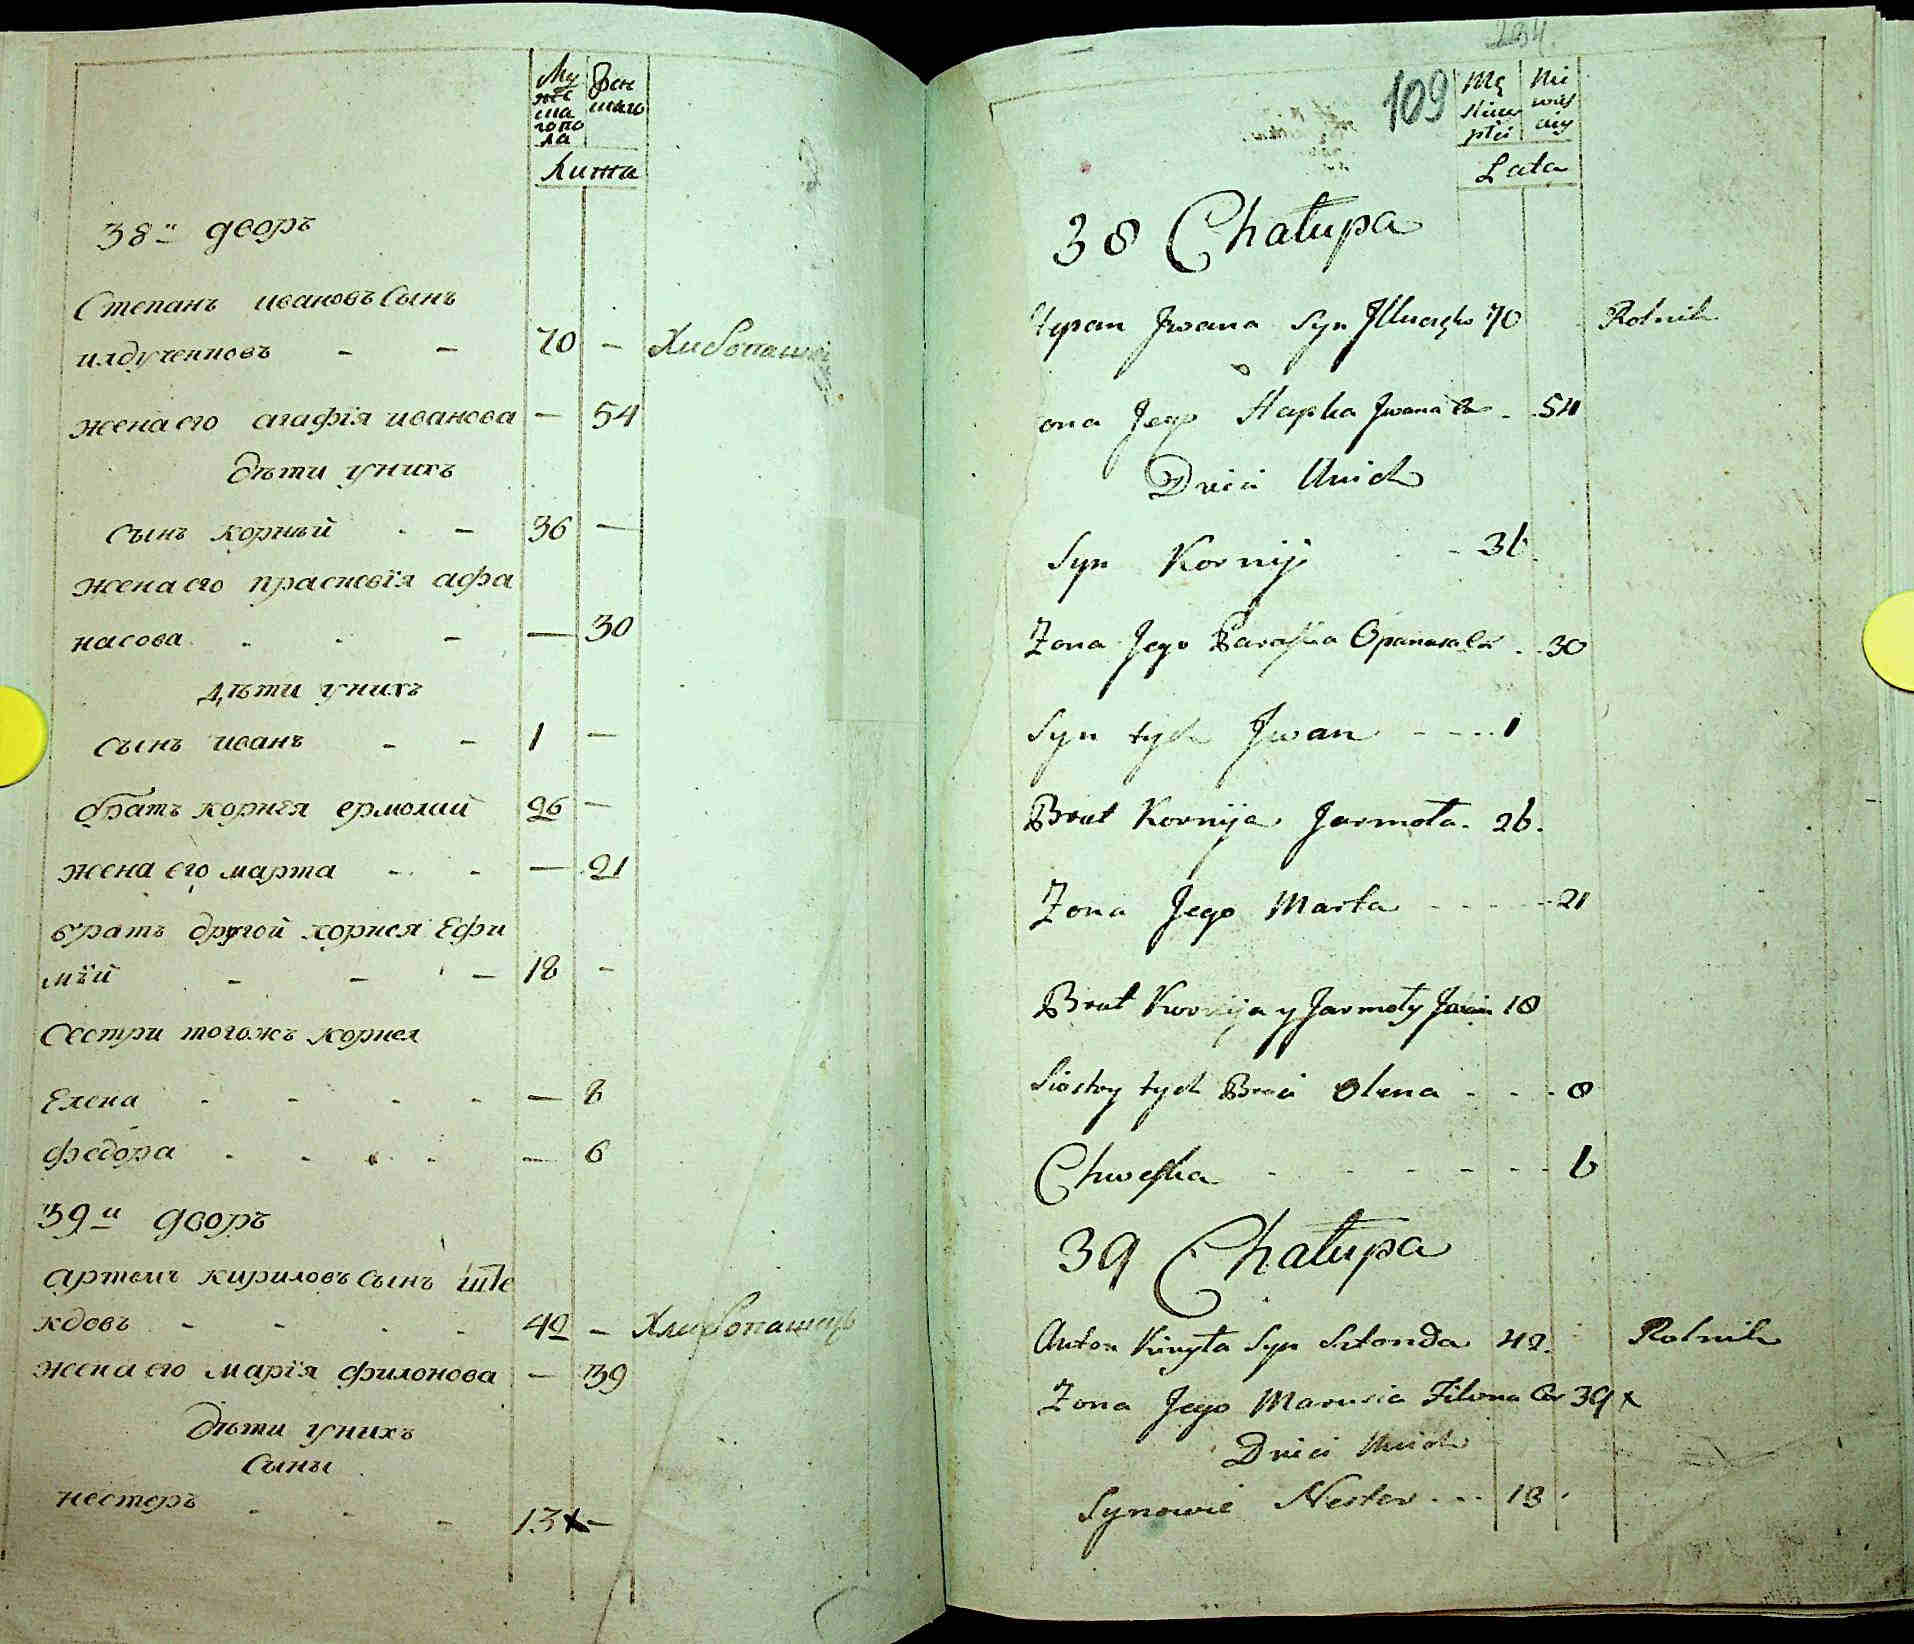 Му
же
ска
гопо
ла
Жен
скаго
Лита
38й дворъ
Степанъ ивановъ Сынъ
илдученковъ - - 70 - Хлибопашець
жена его агафія иванова - 54
дѣти у нихъ
Сынъ корнѣй . - 36 -
жена его прасковія афа
насова . . - - 30
Дѣти у нихъ
Сынъ иванъ - - 1 -
братъ корнея ермолай 26 -
жена его марта - . - - 21
братъ другой корнея Ефи
мъй - - - 18 -
Сестри тогожъ корнея
Елена . - . - - 8
федора . . . . - 6
39й дворъ
артемъ кириловъ сынъ ште
ндовъ - - . . 42 - Хлибопашець
жена его марія филонова - 39
дѣти у нихъ
Сыны
нестеръ . . - 13 x -
234.
109
Mę
skiey
płci
Nie
wieś
ciey
Lata
38 Chałupa
Stepan Jwana Syn 70 Rolnik
ona Jego Hapka Jwana Cór . 54
Dzieci Unich
Syn Kornij . - 36
Zona Jego Paraska Opanasa Cór . . 30
Syn tych Jwan - - - . 1
Brat Kornija Jarmoła. 26.
Zona Jego Marta - - - - - 21
Brat Kornija y Jarmoły 18
Siostry tych Braci Olena - . - . 8
Chweska - - - - - - 6
39 Chałupa
Anton Kiryła Syn Sztonda 42. Rolnik
Zona Jego Marusia Filona Cór 39 x
Dzieci Unich
Synowie Nester . - . 13 .